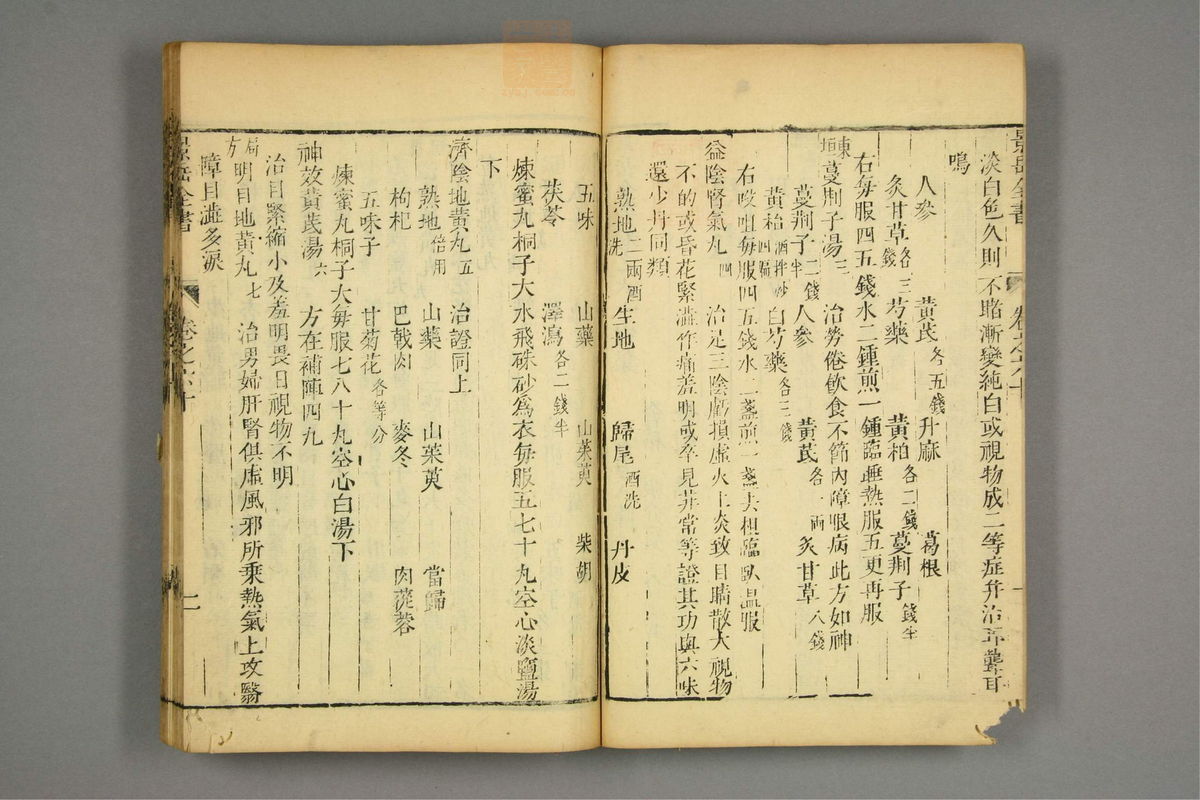 景岳全書
卷之六十
淡白色久則不睹漸變純白或視物成二等症并治耳聾耳
鳴
人參 黃芪各五錢 升麻 葛根
炙甘草各三錢 芍藥 黃柏各二錢 蔓荆子錢半
右每服四五錢水二鍾煎一鍾臨睡熱服五更再服
東垣蔓荆子湯三 治勞倦飲食不節內障眼病此方如神
蔓荆子二錢半 人參 黃芪各一兩 炙甘草八錢
黃柏酒拌炒四遍 白芍藥各三錢
右㕮咀每服四五錢水二盞煎一盞去柤臨臥温服
益陰腎氣丸四 治足三陰虧損虛火上炎致目睛散大視物
不的或昏花緊澁作痛羞明或卒見非常等證其功與六味
還少丹同類
熟地二兩酒洗 生地 歸尾酒洗 丹皮
五味 山藥 山茱萸 柴胡
茯苓 澤瀉各二錢半
煉蜜丸桐子大水飛硃砂爲衣每服五七十丸空心淡鹽湯
下
濟陰地黃丸五 治證同上
熟地倍用 山藥 山茱萸 當歸
枸杞 巴戟肉 麥冬 肉蓯蓉
五味子 甘菊花各等分
煉蜜丸桐子大每服七八十丸空心白湯下
神效黃芪湯六 方在補陣四九
治目緊縮小及羞明畏日視物不明
局方明目地黃丸七 治男婦肝腎俱虛風邪所乘熱氣上攻翳
障目澁多淚
景岳全書
卷之六十
二